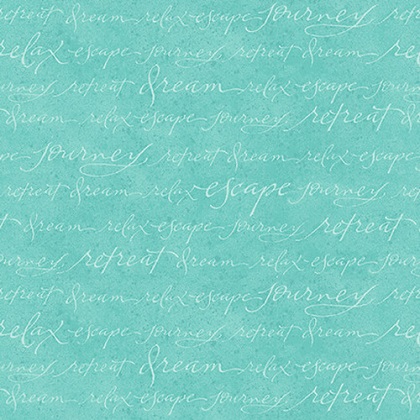 relax escape journey retreat
relax escape journey, retreat dream
retreat dream relax escape journey
dream relax escape journey retreat
escape journey, retreat dream relax
retreat dream relax escape journey
retreat dream relax escape journey retreat
journey, retreat dream relax escape
retreat dream relax escape journey
relax escape journey retreat dream
retreat dream relax escape journey
dream relax escape journey retreat